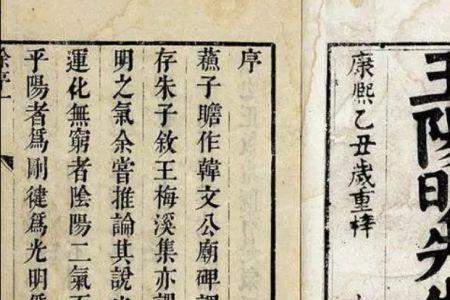 王陽明先
康熙乙丑歲重梓
序
蘓子瞻作韓文公廟碑謂
存朱子敘王梅溪集亦謂
明之氣余嘗推論其說
運化無窮者陰陽二氣
平陽者爲剛徤爲光明
序一